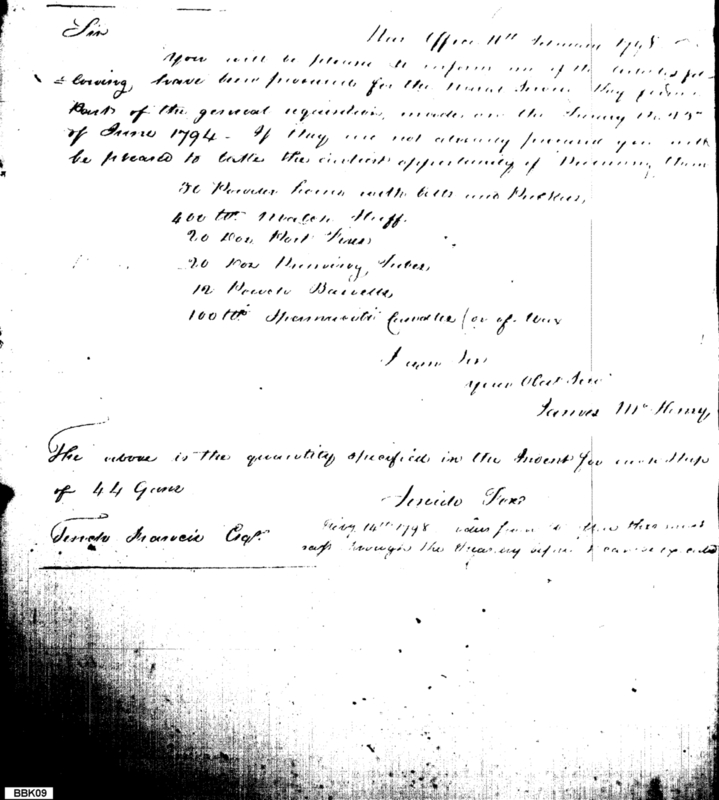 Sir
War Office 11th February 1798
You will be pleased to inform me if the articles fol
=lowing, have been procured for the Naval Service They form a
Part of the general requisition made on the Treasury the
of June 1794 - If they are not already procured you will
be pleased to take the earliest opportunity of Procuring them
Powder horns with bitts and Prickers,
400 lbs. Match Stuff.
20 Doz Port Fires
20 Doz Priming Tubes,
12 Powder Barrells,
100 lbs Spermaceti Candles (or of Wax
I am Sir
your Obet Serv
James McHenry,
The above is the quantity specified in the Indent for each Ship
of 44 Guns
Tench Francis Esqr.
14th 1798
through the Treasury before it can be
BBK09